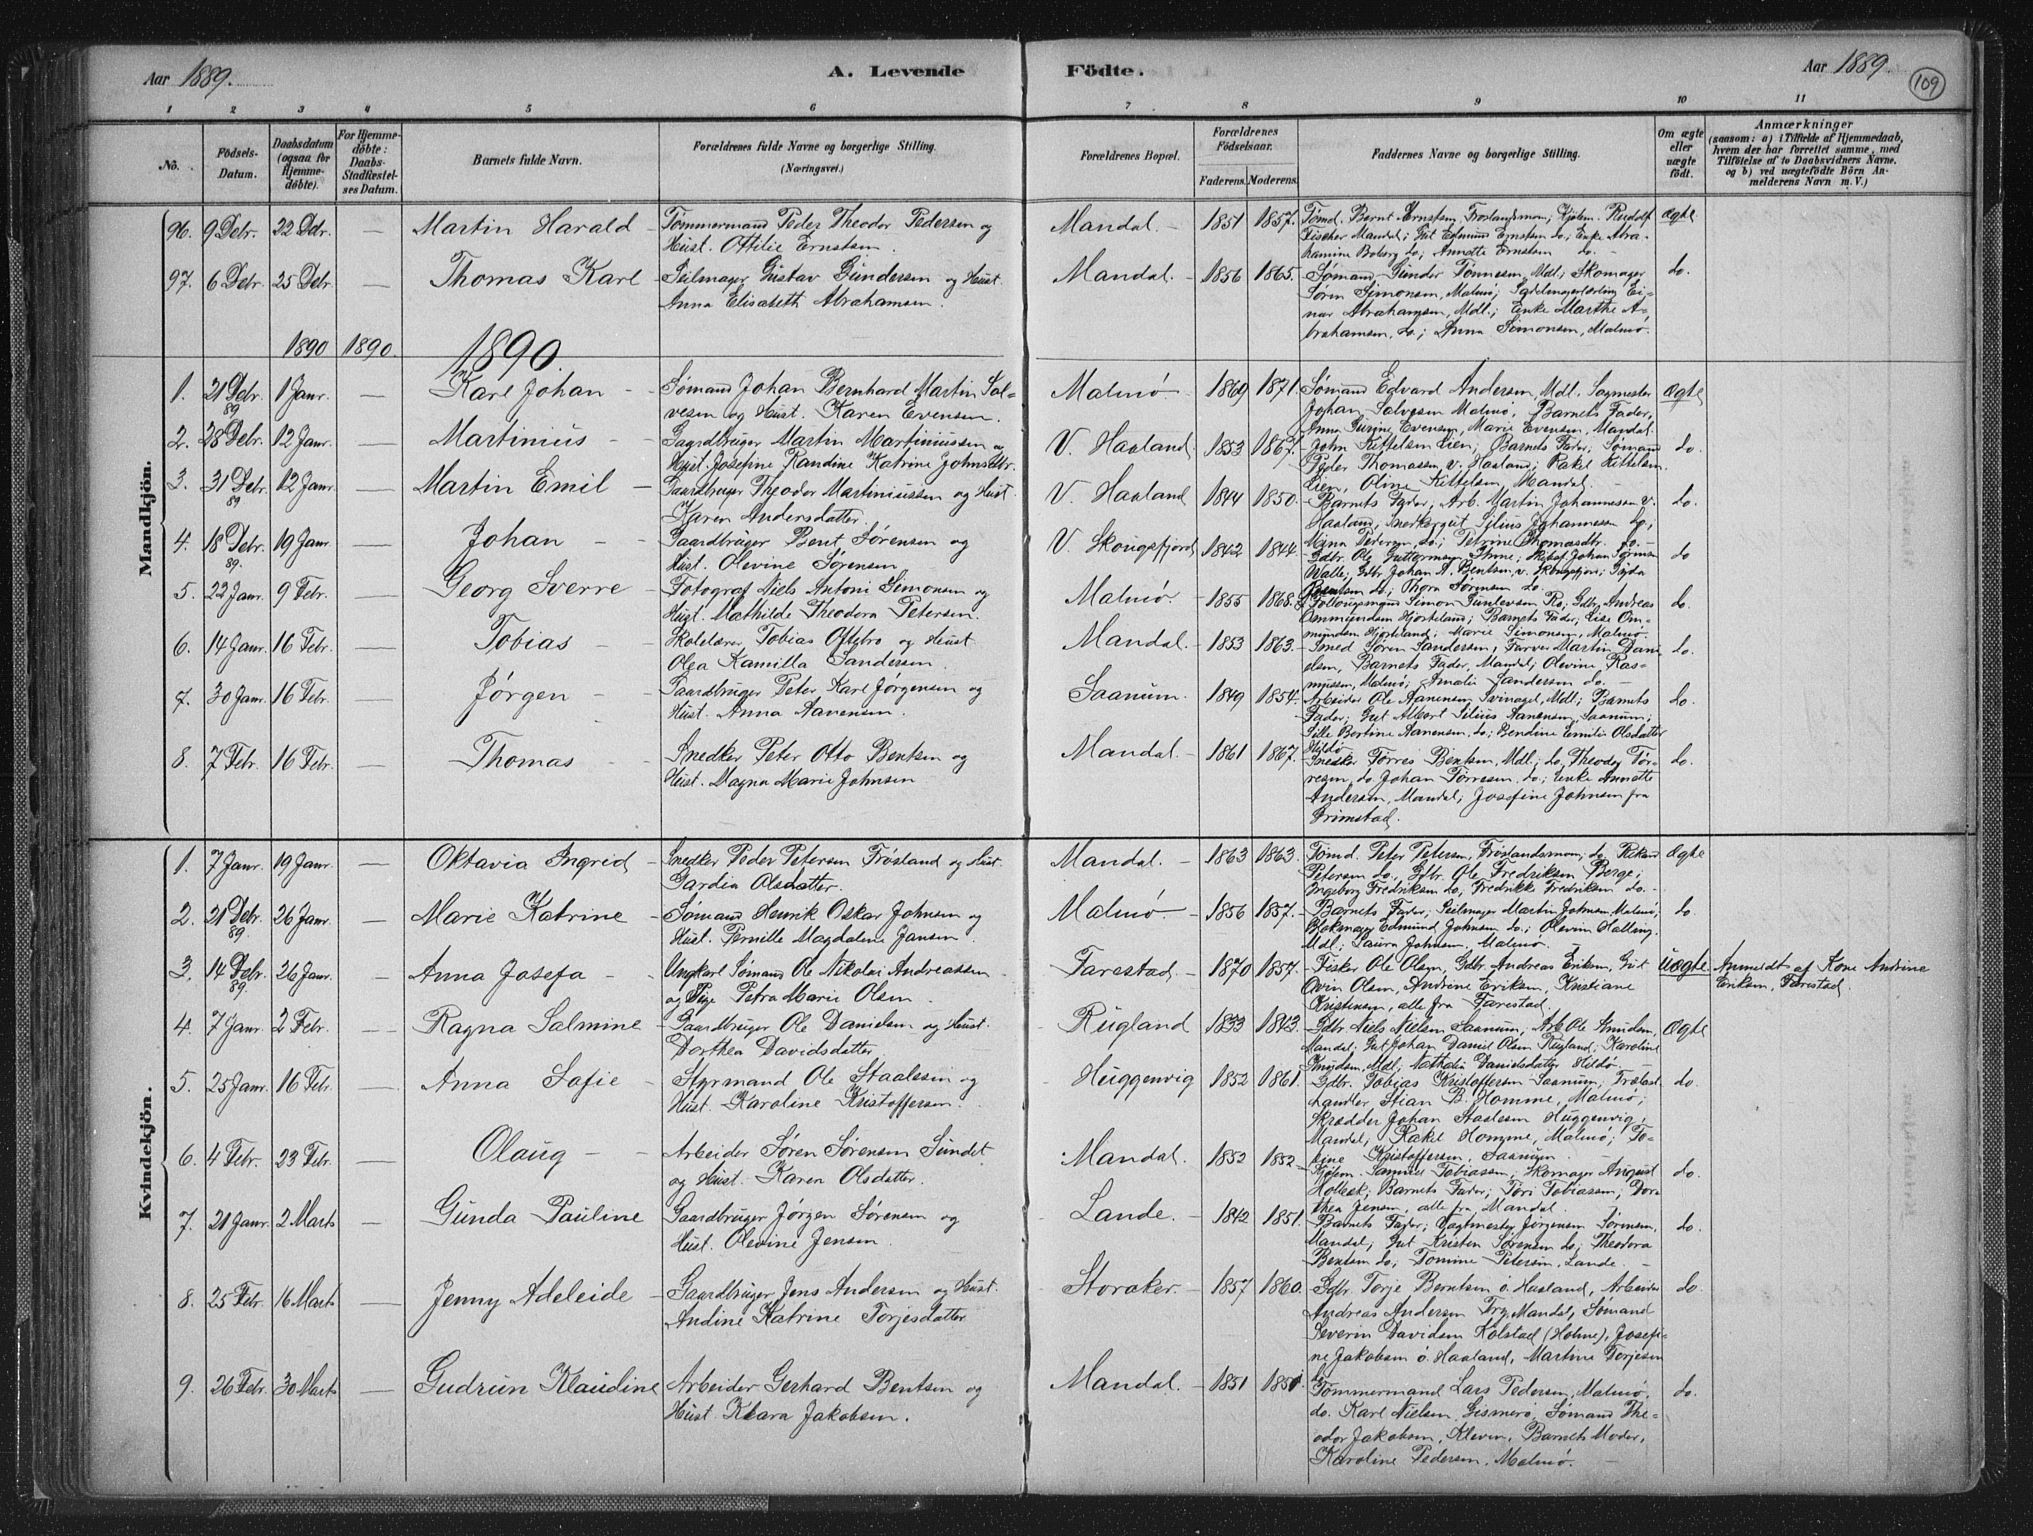 Aar 1889.
A. Levende Födte.
Aar 1889.
109
1 2 3 4 5 6 7 8 9 10 11
No.
Födsels-Datum.
Daabsdatum (ogsaa for Hjemme-døbte).
For Hjemme-døbte: Daabs-Stadfæstel-ses Datum.
Barnets fulde Navn.
Forældrenes fulde Navne og borgerlige Stilling.
(Næringsvei.)
Forældrenes Bopæl.
Forældrenes Födselsaar.
Faderens. Moderens.
Faddernes Navne og borgerlige Stilling.
Om ægte eller uægte födt.
Anmærkninger
(saasom: a) i Tilfælde af Hjemmedaab, hvem der har forrettet samme, med Tilföielse af to Daabsvidners Navne. og b) ved uægtefödte Börn An-melderens Navn m. V.)
Mandkjön.
96. 9 Debr. 22 Debr. — Martin Harald Tømmermand Peder Theodor Pedersen og Mandal 1851 1857. Tømd. Bernt Ernstsen, Frøslandsmoen; Kjøbm. Rudolf Ægte
Hust. Ottilie Ernstsen. Fischer Mandal; Gut Edmund Ernstsen do; Enke Abra-
hamine Boberg do; Annette Ernstsen do.
97. 6 Debr. 25 Debr. — Thomas Karl Seilmager Gustav Gundersen og Hust. Mandal 1856 1865. Sømand Gunder Tønnesen, Mdl; Skomager do.
Anna Elisabeth Abrahamsen. Søren Simonsen, Malmø; Sadelmagerlærling Ei-
nar Abrahamsen, Mdl.; Enke Marthe A-
brahamsen, do; Anna Simonsen, Malmø.
1890 1890. 1890.
1. 21 Debr. 89 1 Janr. — Karl Johan Sømand Johan Bernhard Martin Sal- Malmø 1869 1871. Sømand Edvard Andersen, Mdl. Sagmester Ægte
vesen og Hust. Karen Evensen. Johan Salvesen Malmø, Barnets Fader,
Anna Evensen, Marie Evensen, Mandal.
2. 28 Debr. 12 Janr. — Martinius Gaardbruger Martin Martiniussen og V. Haaland 1853 1867. John Kittelsen Lien; Barnets Fader; Sømand do.
Hust. Josefine Randine Katrine Johnsdtr. Peder Thomassen v. Haaland; Rakel Kittelsen
Lien, Oline Kittelsen, Mandal.
3. 31 Debr. 89 12 Janr. — Martin Emil Gaardbruger Theodor Martiniussen og Hust. V. Haaland 1844 1850. Barnets Fader, Arb. Martin Johannessen v. do.
Karen Andersdatter. Haaland, Snedkergut Silius Johannessen do;
Mina Pedersen do; Petrine Thomasdtr. do.
4. 18 Debr. 89. 19 Janr. — Johan Gaardbruger Bent Sørensen og V. Skougsfjord 1842 1844. Gdbr. Ole Guttormsen; Johan do
Hust. Olevine Sørensen Walle; Gdbr Johan A. Bentsen, v. Skougsfjor;
Bentsen do; Thora Sørensen do.
5. 22 Janr. 9 Febr. — Georg Sverre Fotograf Niels Antoni Simonsen og Malmø. 1855 1868. Simon Gunlevsen Ro; Gdbr. Andreas do.
Hust. Mathilde Theodora Petersen. Ommundsen Hjorteland; Barnets Fader; Lise Om-
mundsen Hjorteland; Marie Simonsen, Malmø.
6. 14 Janr. 16 Febr. — Tobias Skolelærer Tobias Oftebro og Hust. Mandal. 1853 1863. Smed Søren Sandersen, Farver Martin Dani- do.
Olea Kamilla Sandersen. elsen, Barnets Fader, Mandal; Olevine Ras-
mussen, Malmø; Amalie Sandersen do.
7. 30 Janr. 16 Febr. — Jørgen Gaardbruger Peter Karl Jørgensen og Saanum. 1849 1854. Arbeider Ole Aanensen, Mdl; Barnets do.
Hust. Anna Aanensen. Fader; Gut Albert Silius Aanensen, Saanum;
Sille Bertine Aanensen, do; Bendine Emilie Olsdatter
Hildø
8. 7 Febr. 16 Febr. — Thomas Snedker Peter Otto Bentsen og Mandal. 1861 1867. Snedker Torres Bentsen, Mdl; do. Theodor Tor- do.
Hust. Magna Marie Johnsen. resen, do Johan Torresen, do; Enke Annette
Andersen, Mandal; Josefine Johnsen fra
Grimstad.
Kvindekjön.
1. 7 Janr. 19 Janr. — Oktavia Ingrid Snedker Peder Petersen Frøsland og Hust. Mandal. 1863 1863. Tømd. Peter Petersen, Frøslandsmoen; do. Rikard Ægte
Gardia Olsdatter. Petersen do., Gdbr. Ole Fredriksen Berge;
Ingeborg Fredriksen do, Fredrikke Fredriksen do.
2. 21 Debr. 89. 26 Janr. — Marie Katrine Sømand Henrik Oskar Johnsen og Malmø. 1856 1857. Barnets Fader; Seilmager Martin Johnsen Malmø; do.
Hust. Pernille Magdalene Jansen. Blokmager Edmund Johnsen do.; Olevine Halling,
Mdl; Laura Johnsen, Malmø.
3. 14 Debr. 89. 26 Janr. — Anna Josefa Ungkarl Sømand Ole Nikolai Andreassen Farestad. 1870 1857. Fisker Ole Olsen, Gdbr. Andreas Eriksen, Gut Uægte Anmeldt af Kone Andrine
og Pige Petra Marie Olsen. Olsen, Andrine Eriksen, Kristiane Eriksen, Farestad.
Kristensen, alle fra Farestad.
4. 7 Janr. 2 Febr. — Ragna Salmine Gaardbruger Ole Danielsen og Hust. Rugland 1833 1843. Gdbr. Niels Nielsen Saanum; Arb. Ole Knudsen, Ægte
Dorthea Davidsdatter. Mandal; Gut Johan Daniel Olsen Rugland; Karoline
Knudsen, Mdl; Nathalie Danielsdatter Hildø
5. 25 Janr. 16 Febr. — Anna Sofie Styrmand Ole Staalesen og Huggenvig 1852 1861. Gdbr. Tobias Kristoffersen Saanum; Trælast- do.
Hust. Karoline Kristoffersen. handler Stian B. Homme, Malmø;
Skrædder Johan Staalesen Huggenvig;
Mandal; Rakel Homme, Malmø; To-
bine Kristoffersen, Saanum.
6. 4 Febr. 23 Febr. — Olaug Arbeider Søren Sørensen Sundet Mandal. 1852 1852 Kjøbm. Samuel Tobiassen; Skomager August do.
og Hust. Karen Olsdatter. Holbek; Barnets Fader; Tori Tobiassen; Doro-
thea Jensen, alle fra Mandal.
7. 21 Janr. 2 Marts — Gunda Pauline Gaardbruger Jørgen Sørensen og Lande. 1842 1851. Barnets Fader; Vagtmester Jørgensen Sørensen, do.
Hust. Olevine Jensen. Mandal; Gut Kristen Sørensen do; Theodora
Bentsen do; Tomine Petersen, Lande
8. 25 Febr. 16 Marts — Jenny Adeleide Gaardbruger Jens Andersen og Hust. Storaker. 1857 1860. Gdbr. Torje Berntsen ö. Haaland, Arbeider do.
Andine Katrine Torjesdatter. Andreas Andersen Mandal, Sømand
Severin Davidsen Kolstad (Holme), Josefi-
ne Jakobsen ö. Haaland, Martine Torjesen
9. 26 Febr. 30 Marts — Gudrun Klaudine Arbeider Gerhard Bentsen og Mandal. 1851 1851. Tømmermand Lars Pedersen, Malmø, do.
Hust. Klara Jakobsen. do. Karl Nielsen, Gismerö, Sømand The-
odor Jakobsen, Kleven, Barnets Moder,
Karoline Pedersen, Malmø.